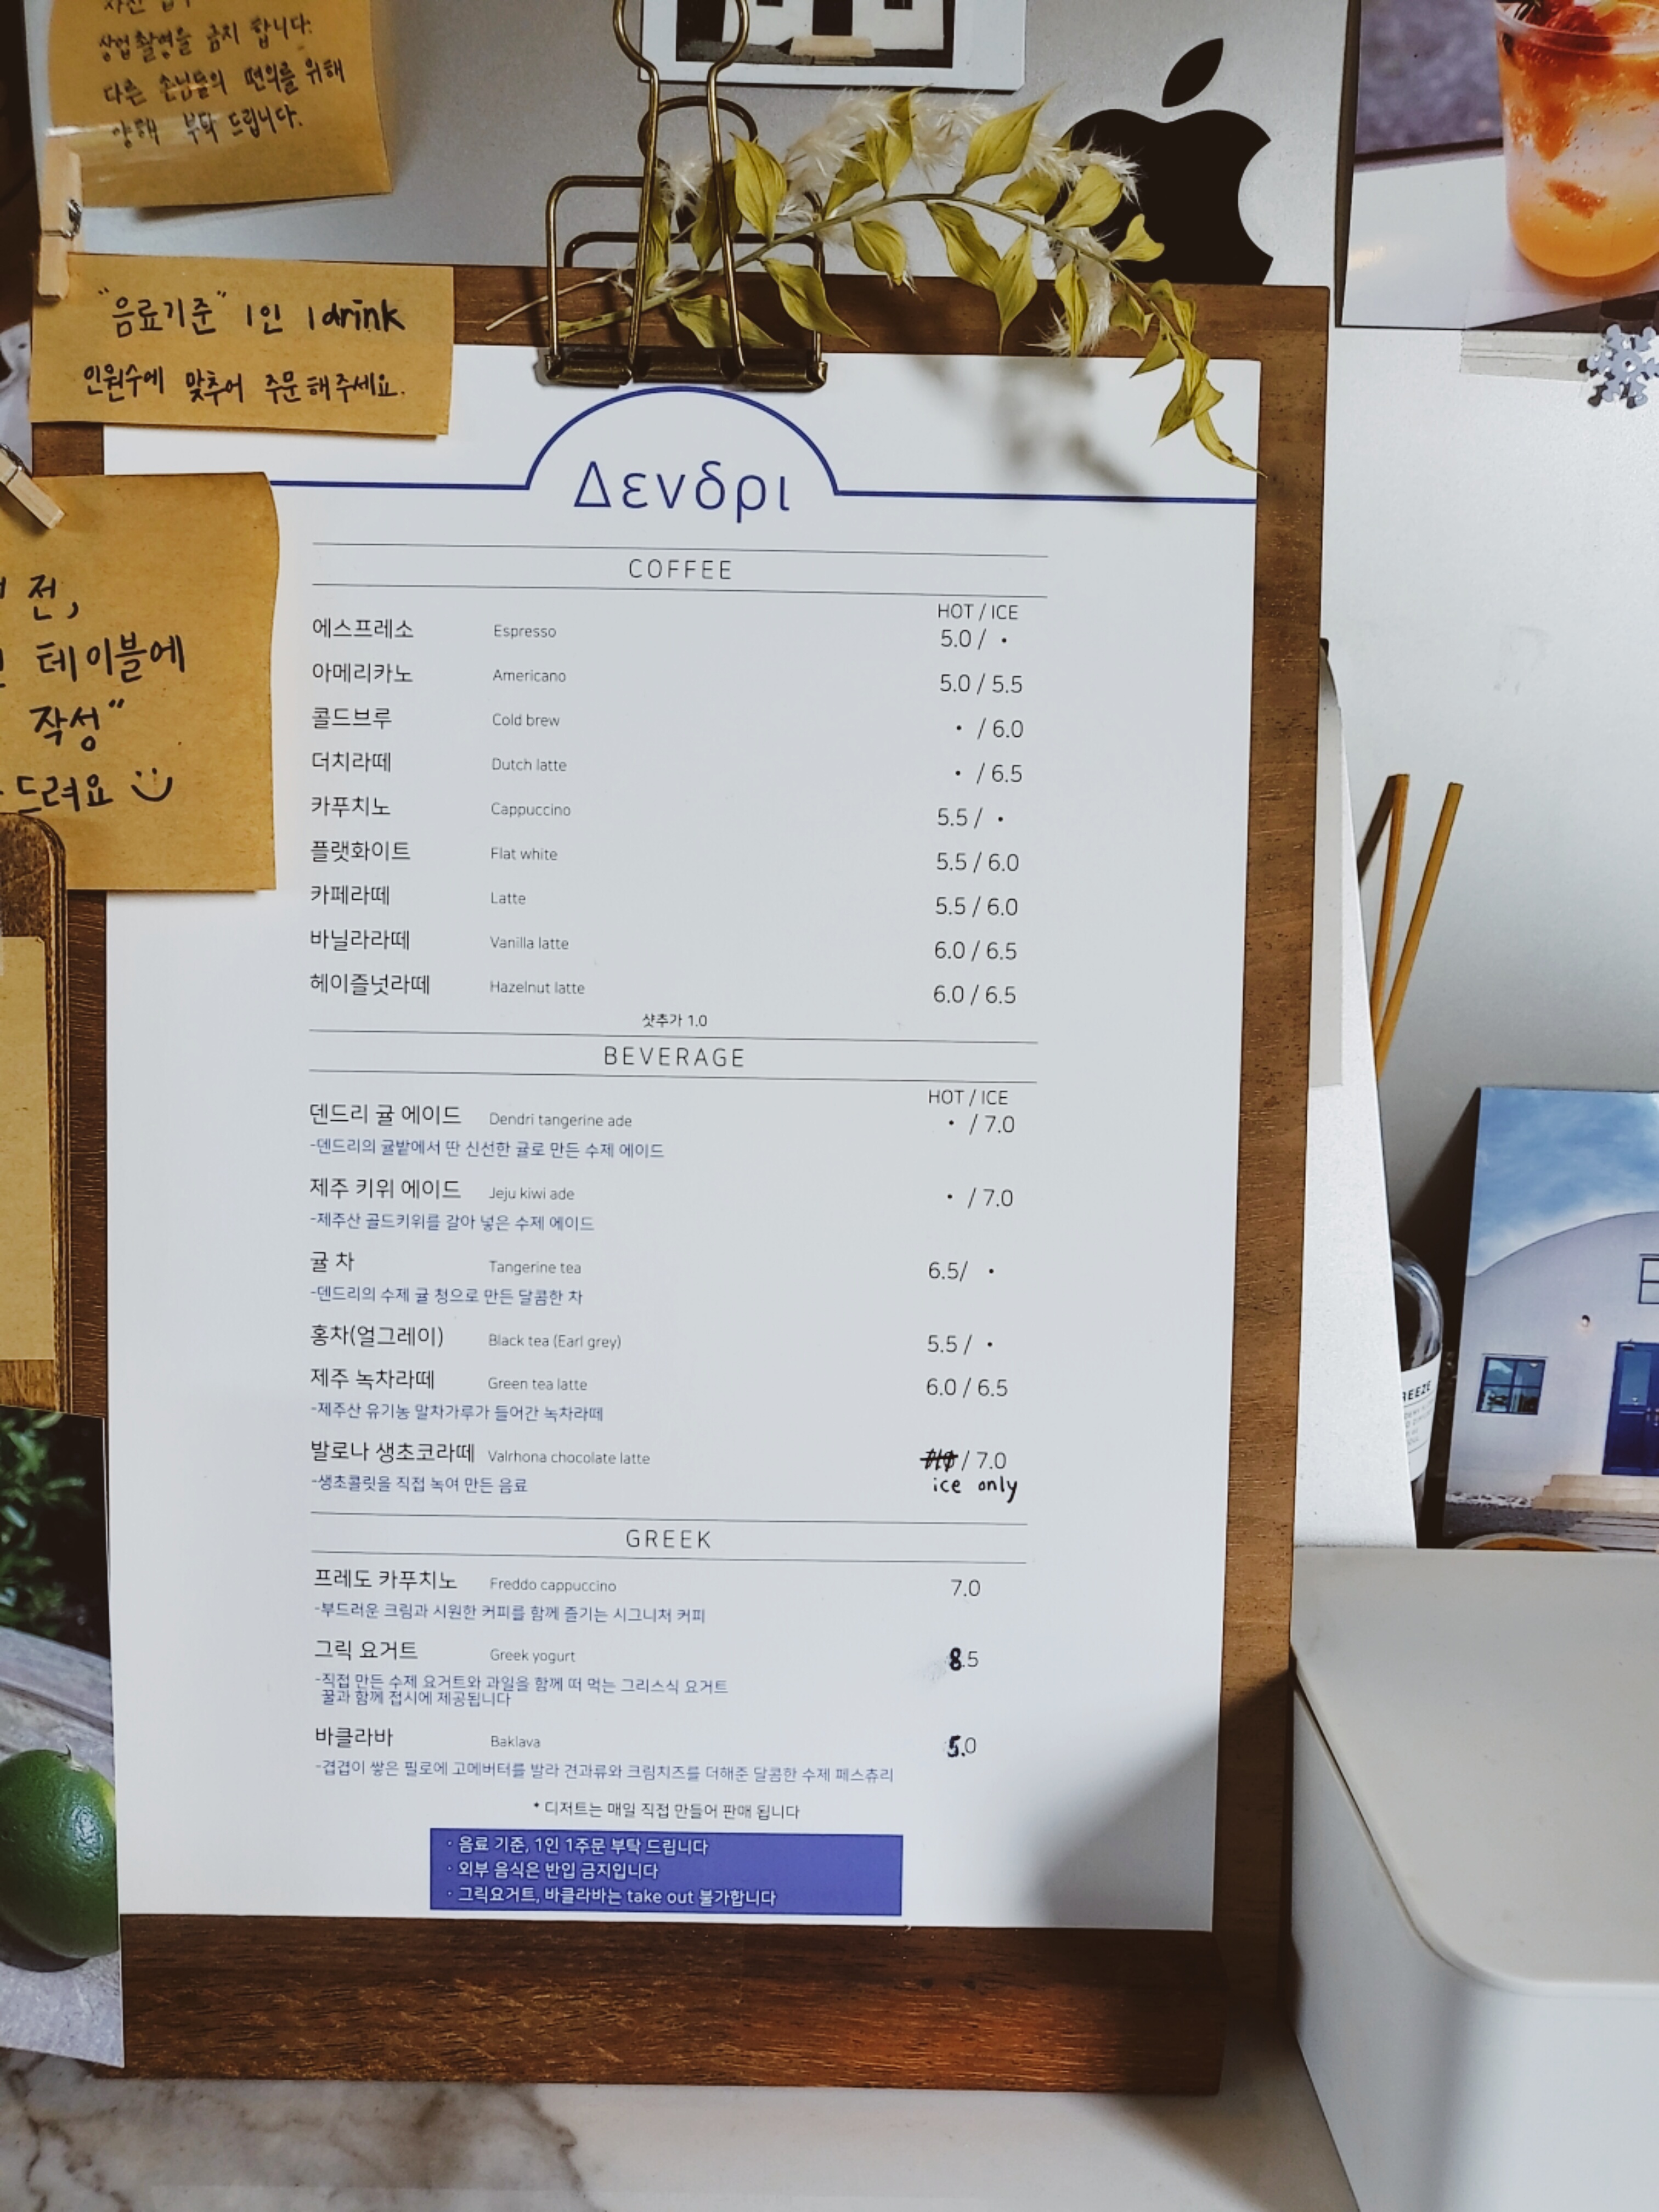 상업촬영을 금지 합니다.
다른 손님들의 편의를 위해
양해 부탁 드립니다.
"음료기준" 1인 1drink
인원수에 맞추어 주문해주세요.
전,
테이블에
작성"
드려요
Δενδρι
COFFEE
HOT / ICE
에스프레소 Espresso 5.0 / •
아메리카노 Americano 5.0 / 5.5
콜드브루 Cold brew • / 6.0
더치라떼 Dutch latte • / 6.5
카푸치노 Cappuccino 5.5 / •
플랫화이트 Flat white 5.5 / 6.0
카페라떼 Latte 5.5 / 6.0
바닐라라떼 Vanilla latte 6.0 / 6.5
헤이즐넛라떼 Hazelnut latte 6.0 / 6.5
샷추가 1.0
BEVERAGE
HOT / ICE
덴드리 귤 에이드 Dendri tangerine ade • / 7.0
-덴드리의 귤밭에서 딴 신선한 귤로 만든 수제 에이드
제주 키위 에이드 Jeju kiwi ade • / 7.0
-제주산 골드키위를 갈아 넣은 수제 에이드
귤 차 Tangerine tea 6.5/ •
-덴드리의 수제 귤 청으로 만든 달콤한 차
홍차(얼그레이) Black tea (Earl grey) 5.5 / •
제주 녹차라떼 Green tea latte 6.0 / 6.5
-제주산 유기농 말차가루가 들어간 녹차라떼
발로나 생초코라떼 Valrhona chocolate latte / 7.0
ice only
-생초콜릿을 직접 녹여 만든 음료
GREEK
프레도 카푸치노 Freddo cappuccino 7.0
-부드러운 크림과 시원한 커피를 함께 즐기는 시그니처 커피
그릭 요거트 Greek yogurt 8.5
-직접 만든 수제 요거트와 과일을 함께 떠 먹는 그리스식 요거트
꿀과 함께 접시에 제공됩니다
바클라바 Baklava 5.0
-겹겹이 쌓은 필로에 고메버터를 발라 견과류와 크림치즈를 더해준 달콤한 수제 페스츄리
* 디저트는 매일 직접 만들어 판매 됩니다
· 음료 기준, 1인 1주문 부탁 드립니다
· 외부 음식은 반입 금지입니다
· 그릭요거트, 바클라바는 take out 불가합니다